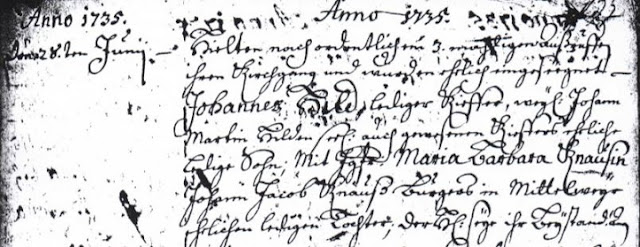 Anno 1735. Anno 1735.
Den 28.ten Junij Hielten nach ordentlichem 3. mahligen außruffen
ihren Kirchgang und wurden ehlich eingesegnet
Johannes Hild, lediger Kieffer, weyl. Johann
Martin Hilden sel. auch gewesenen Kieffers ehliche
ledige Sohn, Mit Jgfr. Maria Barbara Knausin
Johann Jacob Knauß Burgers in Mittelweyer
ehlichen ledigen Tochter, der H: seye ihr Beystand